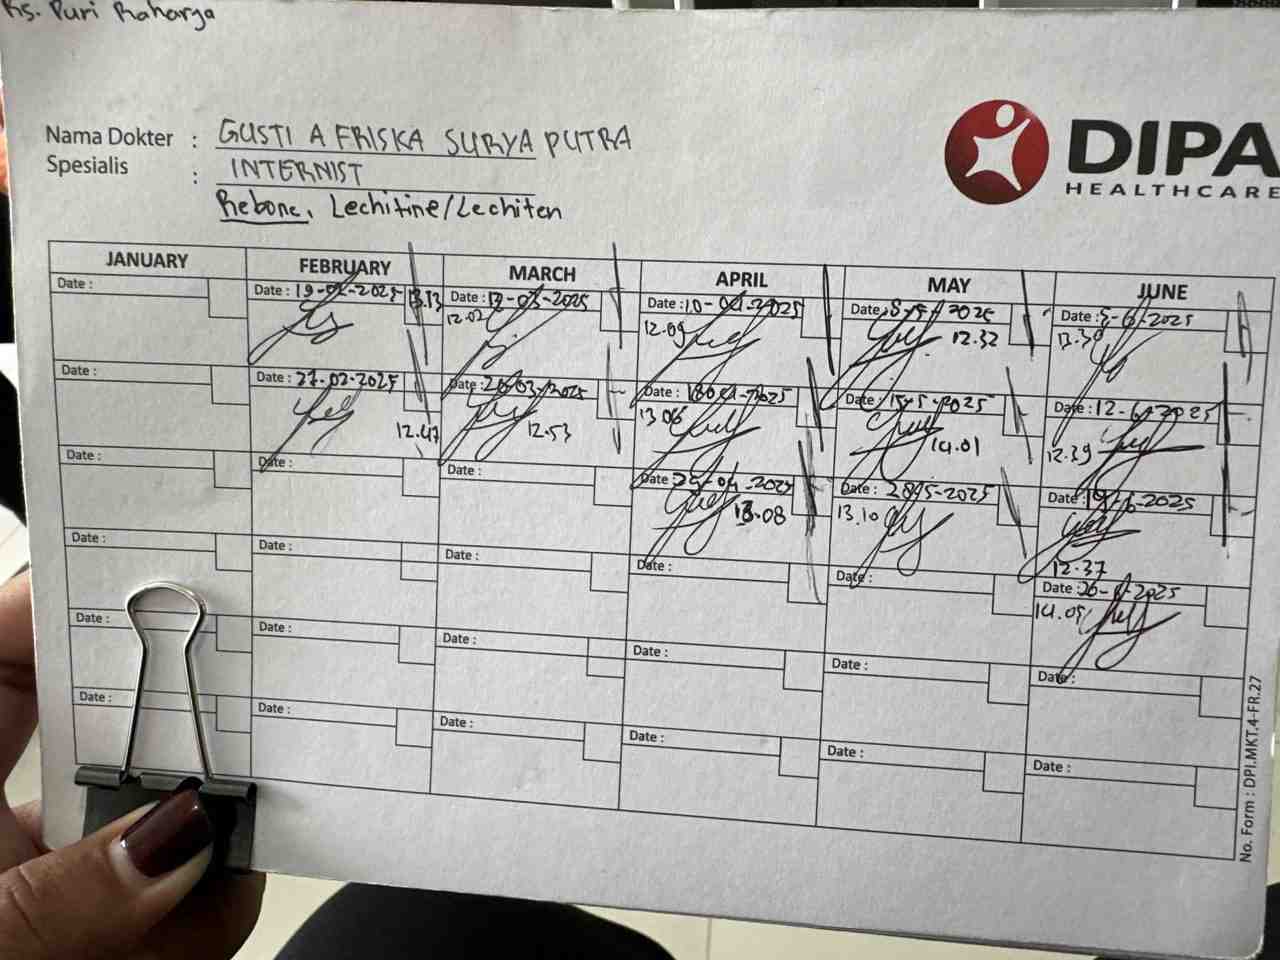 Rs. Puri Raharja
Nama Dokter : GUSTI A FRISKA SURYA PUTRA
Spesialis : INTERNIST
Rebone, Lechitine/Lechiten
DIPA
HEALTHCARE
JANUARY FEBRUARY MARCH APRIL MAY JUNE
Date : Date : 19-02-2025 13.13 Date : 12-03-2025 12.02 Date : 10-04-2025 12.09 Date : 8-5-2025 12.32 Date : 5-6-2025
Date : Date : 27-02-2025 12.47 Date : 26-03-2025 12.53 Date : 18-04-2025 13.06 Date : 15-5-2025 14.01 Date : 12-6-2025 12.39
Date : Date : Date : Date : 25-04-2025 13.08 Date : 28-5-2025 13.10 Date : 19-6-2025 12.37
Date : Date : Date : Date : Date : Date : 26-6-2025 14.05
Date : Date : Date : Date : Date : Date :
Date : Date : Date : Date : Date : Date :
No. Form : DPI.MKT.4-FR.27